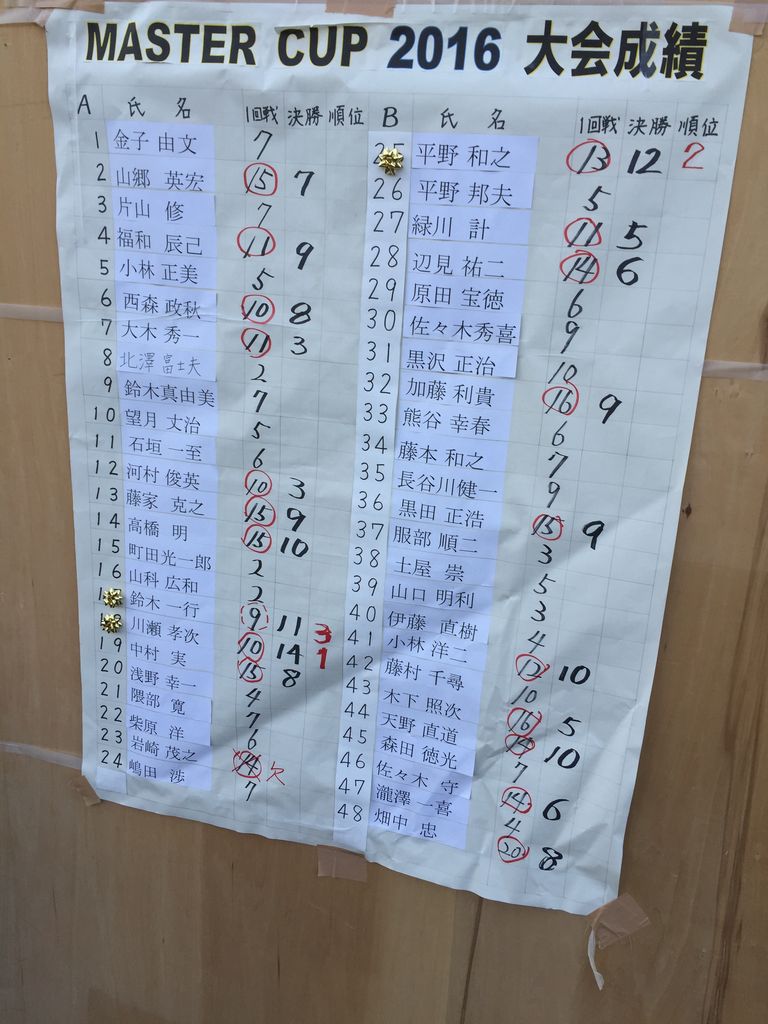 MASTER CUP 2016 大会成績
A 氏 名 1回戦 決勝 順位
1 金子 由文 7
2 山郷 英宏 15 7
3 片山 修 7
4 福和 辰己 11 9
5 小林 正美 5
6 西森 政秋 10 8
7 大木 秀一 11 3
8 北澤富士夫 2
9 鈴木真由美 7
10 望月 丈治 5
11 石垣 一至 6
12 河村 俊英 10 3
13 藤家 克之 15 9
14 高橋 明 15 10
15 町田光一郎 2
16 山科 広和 2
17 鈴木 一行 9 11 3
18 川瀬 孝次 10 14 1
19 中村 実 15 8
20 浅野 幸一 4
21 隈部 寛 7
22 柴原 洋 6
23 岩崎 茂之 14 欠
24 嶋田 渉 7
B 氏 名 1回戦 決勝 順位
25 平野 和之 13 12 2
26 平野 邦夫 5
27 緑川 計 11 5
28 辺見 祐二 14 6
29 原田 宝徳 6
30 佐々木秀喜 9
31 黒沢 正治 10
32 加藤 利貴 16 9
33 熊谷 幸春 6
34 藤本 和之 7
35 長谷川健一 9
36 黒田 正浩 15 9
37 服部 順二 3
38 土屋 崇 5
39 山口 明利 3
40 伊藤 直樹 4
41 小林 洋二 12 10
42 藤村 千尋 10
43 木下 照次 16 5
44 天野 直道 14 10
45 森田 徳光 7
46 佐々木 守 14 6
47 瀧澤 一喜 4
48 畑中 忠 20 8